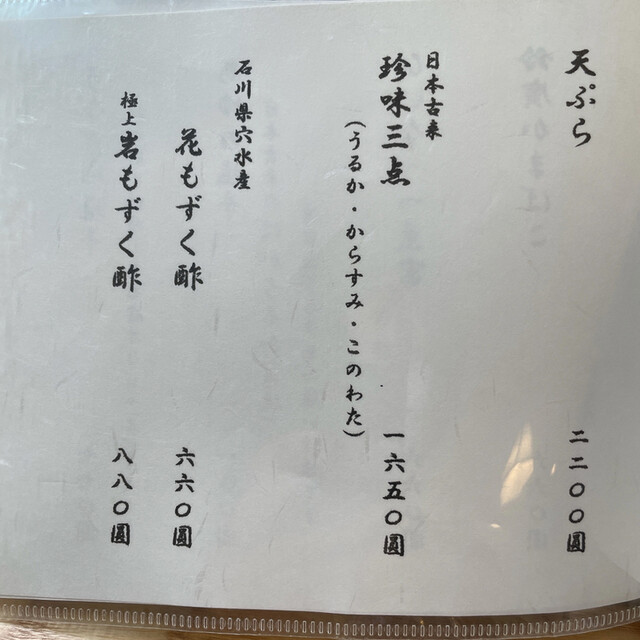 天ぷら 二二〇〇圓
日本古来
珍味三点 一六五〇圓
(うるか・からすみ・このわた)
石川県穴水産
花もずく酢 六六〇圓
極上岩もずく酢 八八〇圓